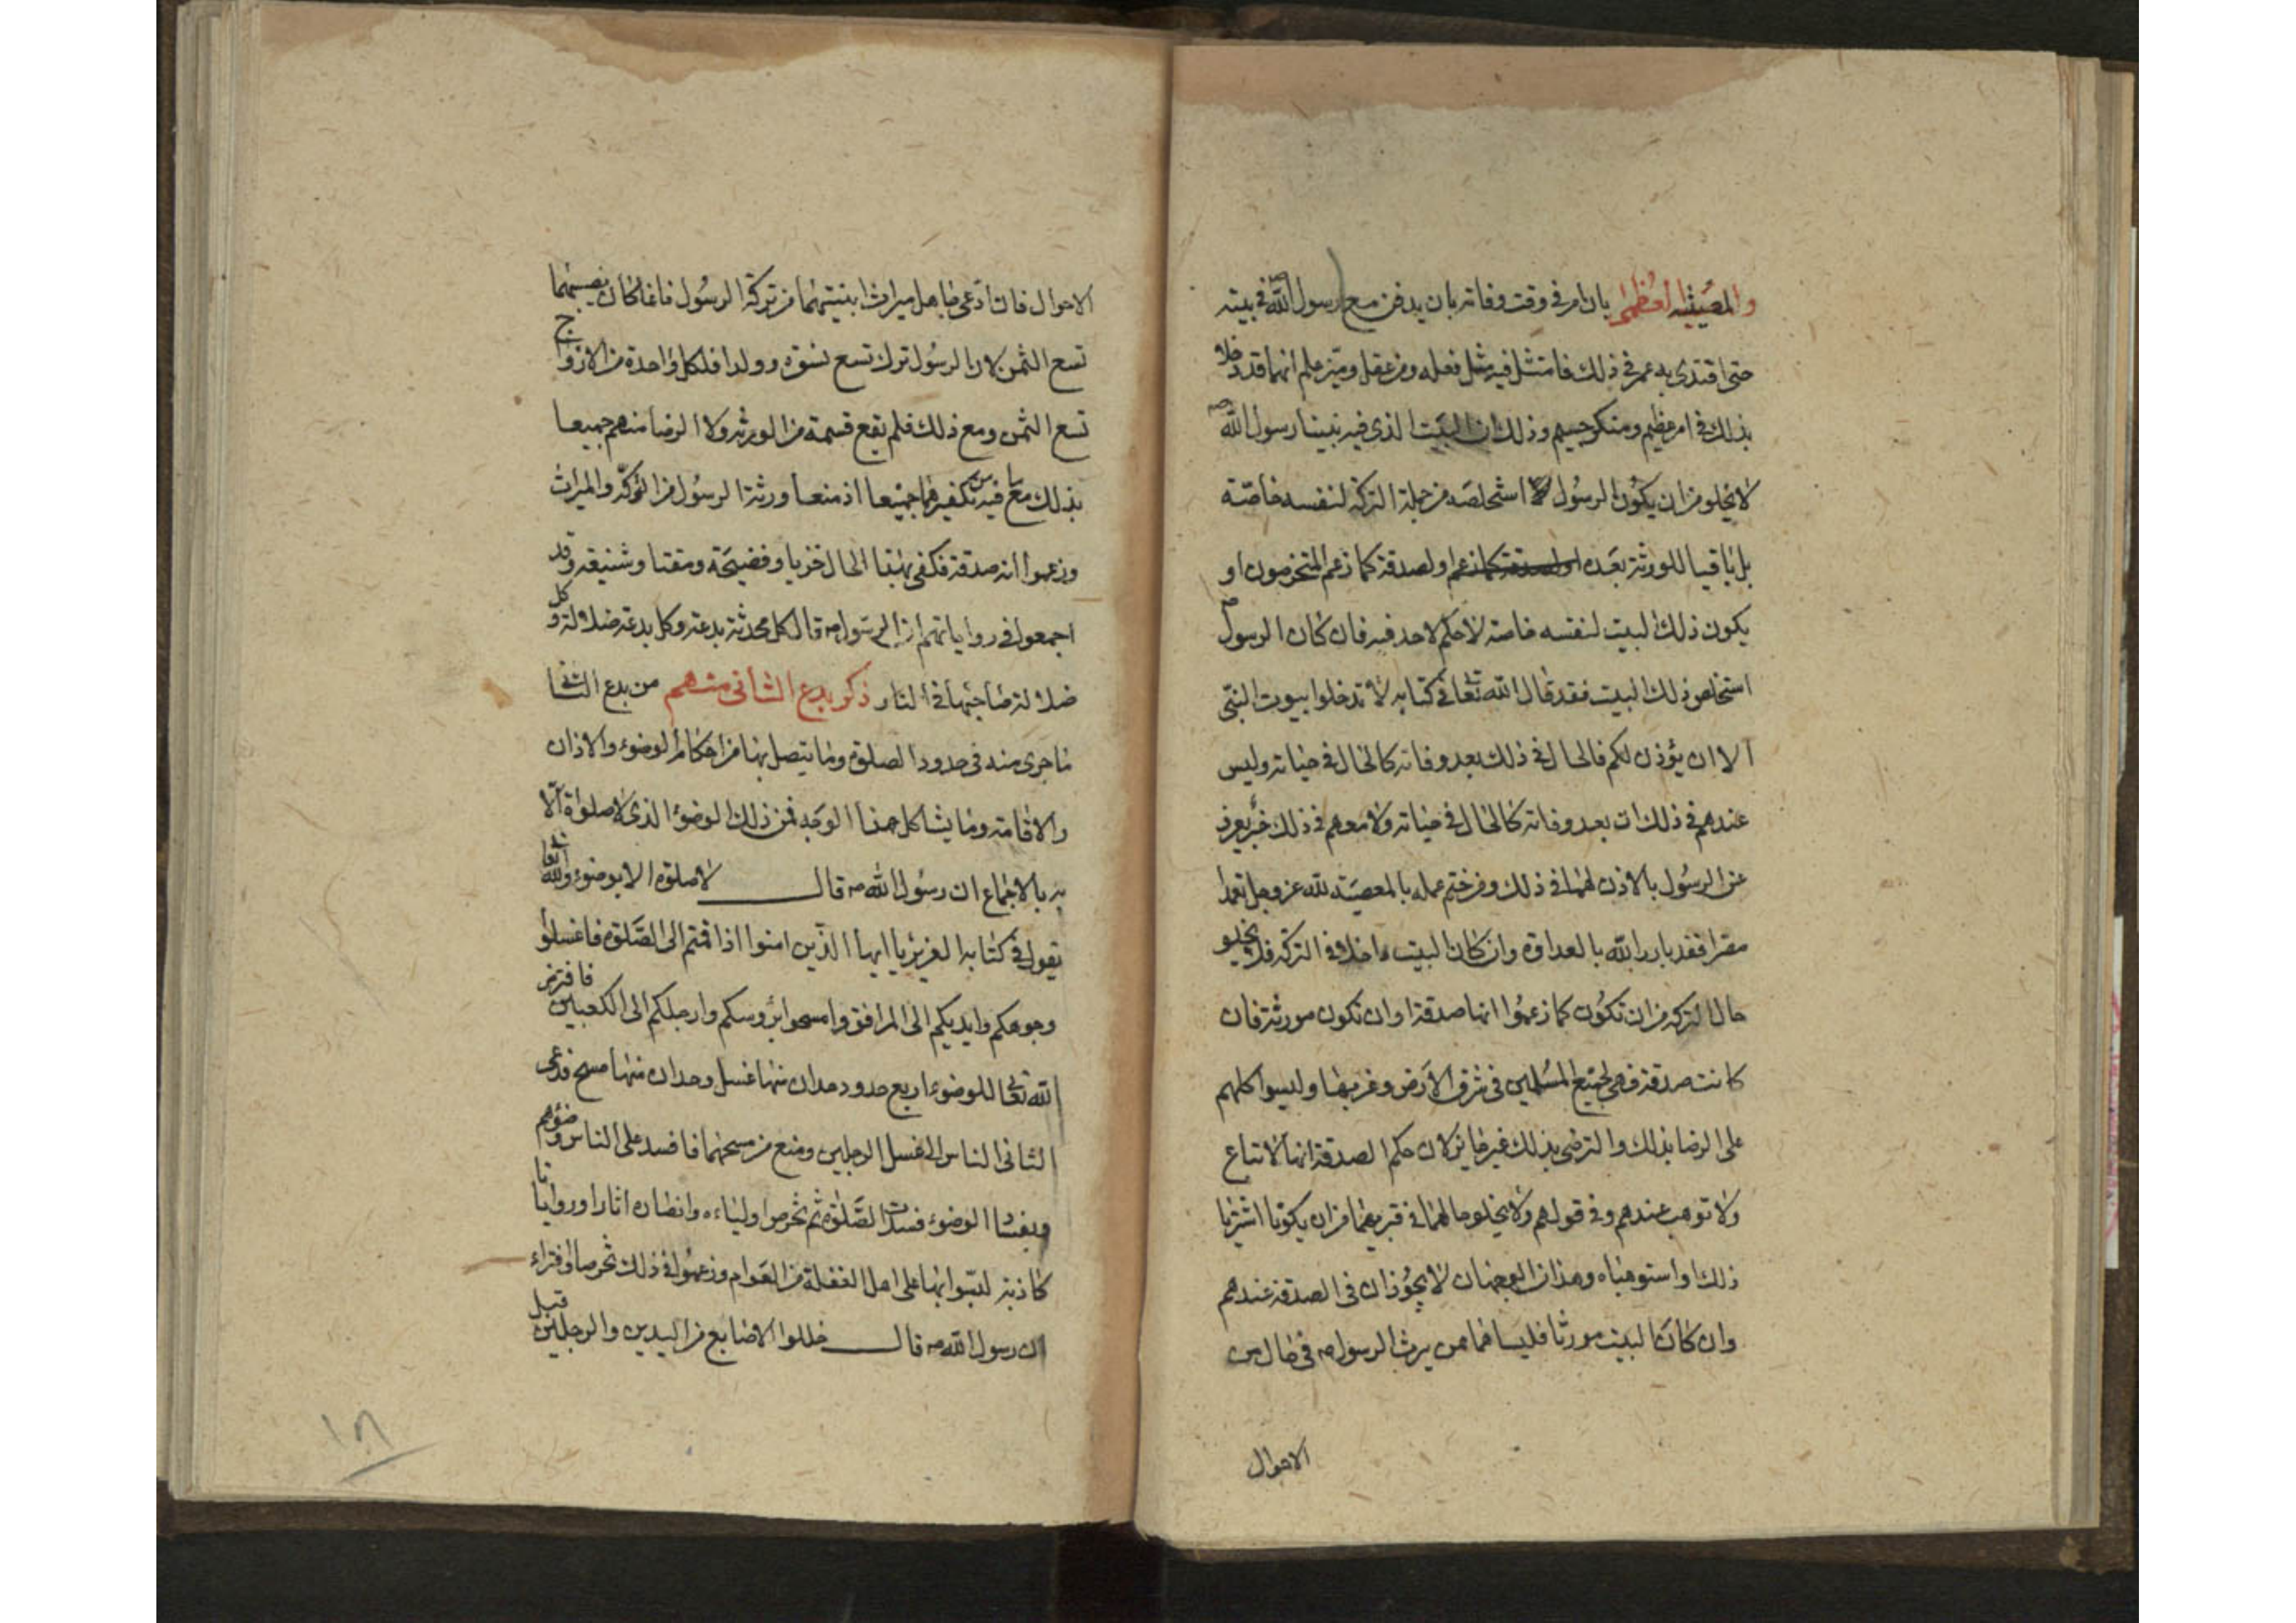 والمصيبة العظمى بان امر في وقت وفاته بان يدفن مع رسول الله ص في بيته
حتى اقتدى به عمر في ذلك فامتثل فيه مثل فعله ومن عقل وميّز علم انهما قد دخلا
بذلك في امر عظيم ومنكر جسيم وذلك ان البيت الذي فيه نبينا رسول الله ص
لا يخلو من ان يكون الرسول استخلصه من جملة التركة لنفسه خاصّة
بل باقيا للورثة بعده او لصدقة كما زعم المتخرصون او
يكون ذلك البيت لنفسه خاصة لا حكم لاحد فيه فان كان الرسول ص
استخلص ذلك البيت فقد قال الله تعا في كتابه لا تدخلوا بيوت النبي
الا ان يؤذن لكم فالحال في ذلك بعد وفاته كالحال في حياته وليس
عندهم في ذلك ان بعد وفاته كالحال في حياته ولا معهم في ذلك خبر يعرف
عن الرسول بالاذن لهما في ذلك ومن ختم عمله بالمعصية لله عز وجل تعمدا
مقرا فقد بارز الله بالعداوة وان كان البيت داخلا في التركة فلا يخلو
حال التركة من ان تكون كما زعموا انها صدقة او ان تكون موروثة فان
كانت صدقة فهي لجميع المسلمين في شرق الارض وغربها وليسوا كلهم
على الرضا بذلك والترضى بذلك غير جايز لان حكم الصدقة انها لا تباع
ولا توهب عندهم وفي قولهم ولا يخلو حالهما في قبريهما من ان يكونا اشتريا
ذلك او استوهباه وهذان الوجهان لا يجوزان في الصدقة عندهم
وان كان البيت مورثا فليسا هما ممن يرث الرسول ص في حال من
الاحوال
الاحوال فان ادّعى جاهل ميراث ابنتيهما من تركة الرسول فانما كان نصيبهما
تسع الثمن لان الرسول ترك تسع نسوة وولدا فلكل واحدة من الازواج
تسع الثمن ومع ذلك فلم يقع قسمة من الورثة ولا الرضا منهم جميعا
بذلك مع ما فيه من تكفيرهما جميعا اذ منعا ورثة الرسول من التركة والميراث
وزعموا انه صدقة فكفى بهذا الحال خزيا وفضيحة ومقتا وشنيعة وقد
اجمعوا في رواياتهم ان الرسول ص قال كل محدثة بدعة وكل بدعة ضلالة وكل
ضلالة صاحبها في النار ذكر بدع الثاني منهم من بدع الثاني
ما جرى منه في حدود الصلوة وما يتصل بها من احكام الوضوء والاذان
والاقامة وما يشاكل هذا الوجه فمن ذلك الوضوء الذي لا صلواة الّا
به بالاجماع ان رسول الله ص قال لا صلوة الا بوضوء والله تعا
يقول في كتابه العزيز يا ايها الّذين امنوا اذا قمتم الى الصّلوة فاغسلوا
وجوهكم وايديكم الى المرافق وامسحوا برؤسكم وارجلكم الى الكعبين فافترض
الله تعا للوضوء اربع حدود حدان منها غسل وحدان منها مسح فدعى
الثاني الناس الى غسل الرجلين ومنع من مسحهما فافسد على الناس وضؤهم
وبفساد الوضوء فسدت الصّلوة ثم تخرصوا اولياءه وانصاره اثارا وروايا تا
كاذبة لبّسوا بها على اهل الغفلة من العوام وزعموا في ذلك تخرصا وافتراء
ان رسول الله ص قال خللوا الاصابع من اليدين والرجلين قبل
١٨١